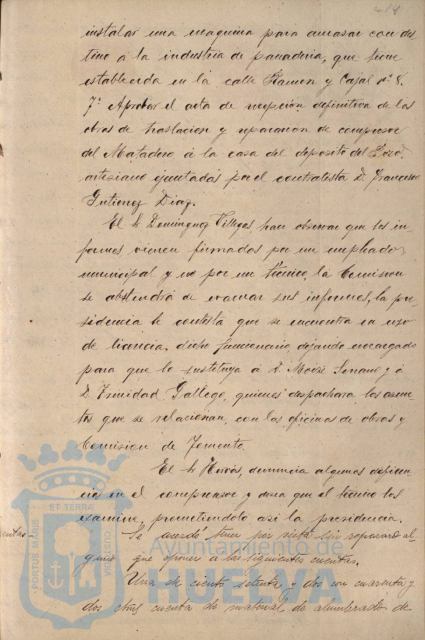 instalar una maquina para amasar con des
tino á la industria de panaderia, que tiene
establecida en la calle Ramon y Cajal nº 8.
7º Aprobar el acta de recepcion definitiva de las
obras de traslacion y reparacion de compresor
del Matadero á la casa del deposito del Pozo
artesiano ejecutadas por el contratista D. Francisco
Gutierrez Diaz.
El Sr Dominguez Villegas hace observar que los in
formes vienen firmados por un empleado
municipal y no por un tecnico, la Comision
se abstendrá de evacuar sus informes, la pre
sidencia le contesta que se encuentra en uso
de licencia, dicho funcionario dejando encargado
para que lo sustituya á D. Serrano y á
D. Trinidad Gallego, quienes despachara los asun
tos que se relacionan, con las oficinas de obras y
Comision de Fomento.
El Sr denuncia algunas deficien
cias en el compresor y desea que el tecnico los
examine, prometiendolo asi la presidencia.
Se acordó tener por sin reparo al
guno que oponer á las siguientes cuentas.
Una de ciento setenta y dos con cuarenta y
dos ctms cuenta de material de alumbrado de
PORTUS MARIS
ET TERRAE
CUSTODIA
Ayuntamiento de
HUELVA